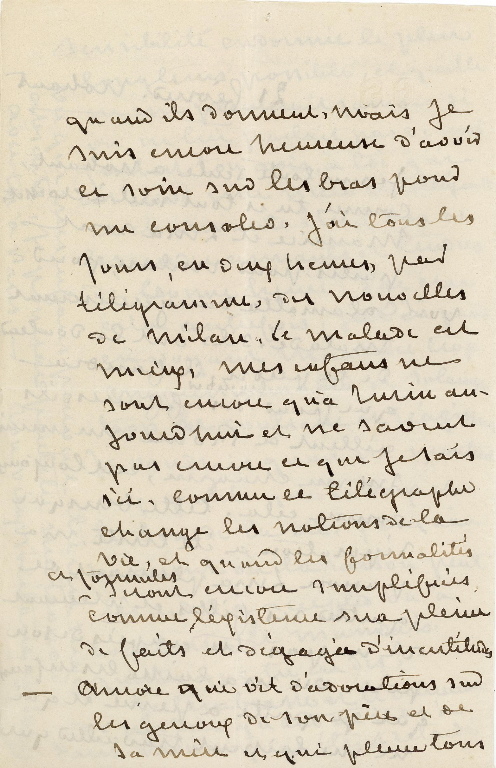 quand ils dorment, mais je
suis encore heureuse d'avoir
ce soin sur les bras pour
me consoler. J'ai tous les
jours, en deux heures, par
télégramme, des nouvelles
de Milan. Le malade est
mieux, mes enfans ne
sont encore qu'à Turin au-
jourd'hui et ne savent
pas encore ce que je sais
ici. comme ce télégraphe
change les notions de la
vie, et quand les formalités
et formules
seront encore simplifiées,
comme l'existence sera pleine
de faits et dégagée d'incertitudes
— Aurore qui vit d'adorations sur
les genoux de son père et de
sa mère et qui pleure tous